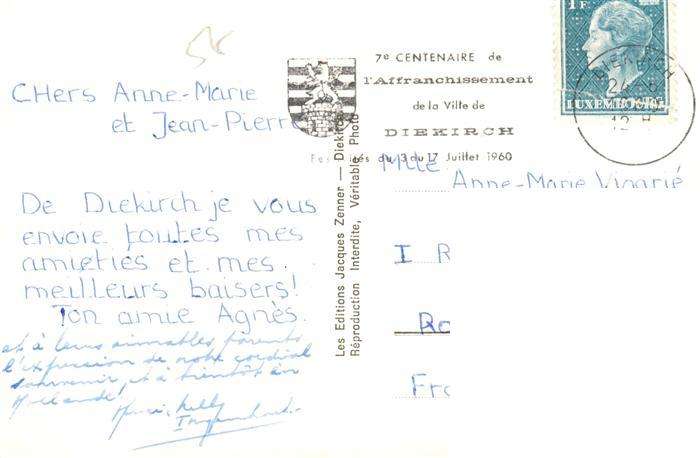 5€
CHers Anne-Marie
et Jean-Pierre
De Diekirch je vous
envoie toutes mes
amieties et mes
meilleurs baisers!
Ton amie Agnès.
et à leurs aimables parents
l'expression de notre cordial
souvenir, et à bientôt en
Hollande!
7e CENTENAIRE de
l'Affranchissement
de la Ville de
DIEKIRCH
du 3 au 17 Juillet 1960
Les Editions Jacques Zenner — Diekirch
Réproduction Interdite, Véritable Photo
1F
LUXEMBOURG
DIEKIRCH
12 H
Mlle
Anne-Marie Vinarié
I R
Ro
Fra